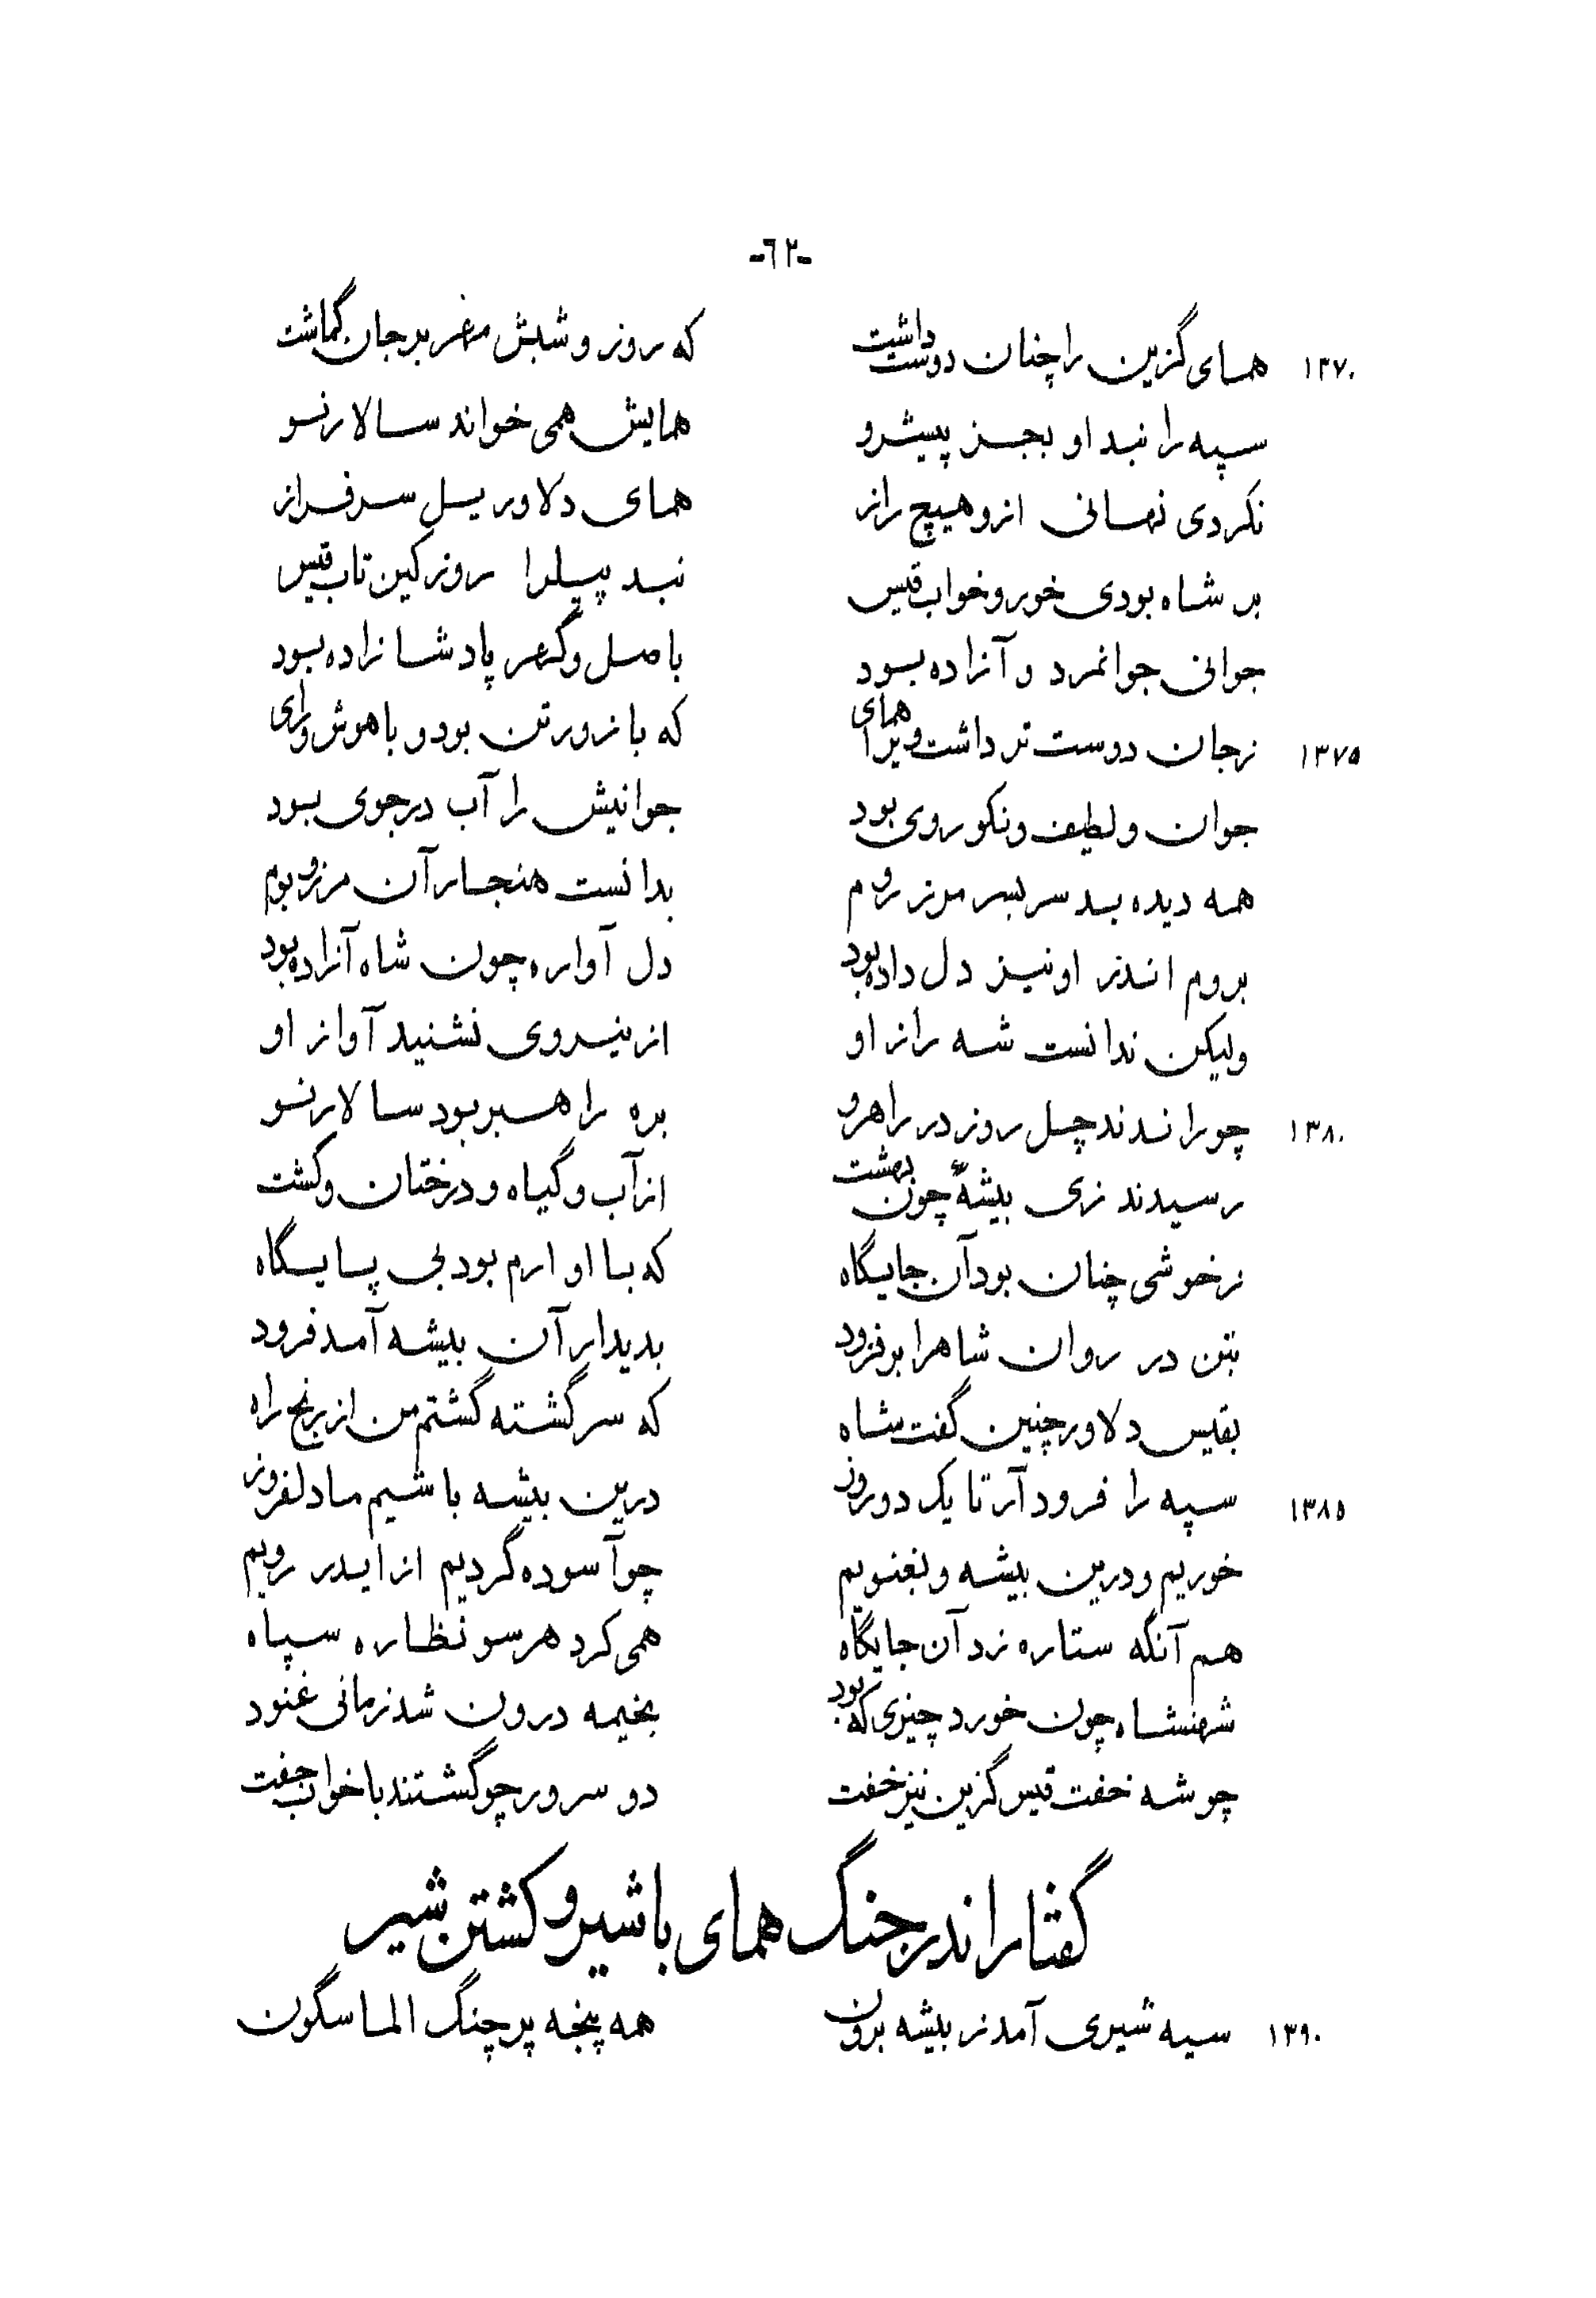 -٦٢-
١٣٧٠ همای گزین را چنان دوست داشت که روز و شبش مغز بر جان گماشت
سپه را نبد او بجز پیشرو همایش همی خواند سالار نو
نکردی نهانی ازو هیچ راز همای دلاور یل سرفراز
بر شاه بودی خور و خواب قیس نبد پیل را روز کین تاب قیس
جوانی جوانمرد و آزاده بود باصل و گهر پادشا زاده بود
١٣٧٥ ز جان دوست تر داشت ویرا همای که با زور تن بود و با هوش و رای
جوان و لطیف و نکو روی بود جوانیش را آب در جوی بود
همه دیده بد سربسر مرز روم بدانست هنجار آن مرز و بوم
بروم اندر او نیز دل داده بود دل آواره چون شاه آزاده بود
ولیکن ندانست شه راز او از نیروی نشنید آواز او
١٣٨٠ چو راندند چل روز در راه رو بره راهبر بود سالار نو
رسیدند زی بیشهٔ چون بهشت از آب و گیاه و درختان و کشت
ز خوشی چنان بود آن جایگاه که با او ارم بود بی پایگاه
بتن در روان شاهرا بر فزود بدیدار آن بیشه آمد فرود
بقیس دلاور چنین گفت شاه که سرگشته گشتم من از رنج راه
١٣٨٥ سپه را فرود آر تا یک دو روز درین بیشه باشیم ما دلفروز
خوریم و درین بیشه و بغنویم چو آسوده گردیم از ایدر رویم
هم آنگه ستاره زد آن جایگاه همی کرد هر سو نظاره سپاه
شهنشاه چون خورد چیزی که بود بخیمه درون شد زمانی غنود
چو شه خفت قیس گزین نیز خفت دو سرور چو گشتند با خواب جفت
گفتار اندر جنگ همای با شیر و کشتن شیر
١٣٩٠ سیه شیری آمد ز بیشه برون همه پنجه پر چنگ الماسگون